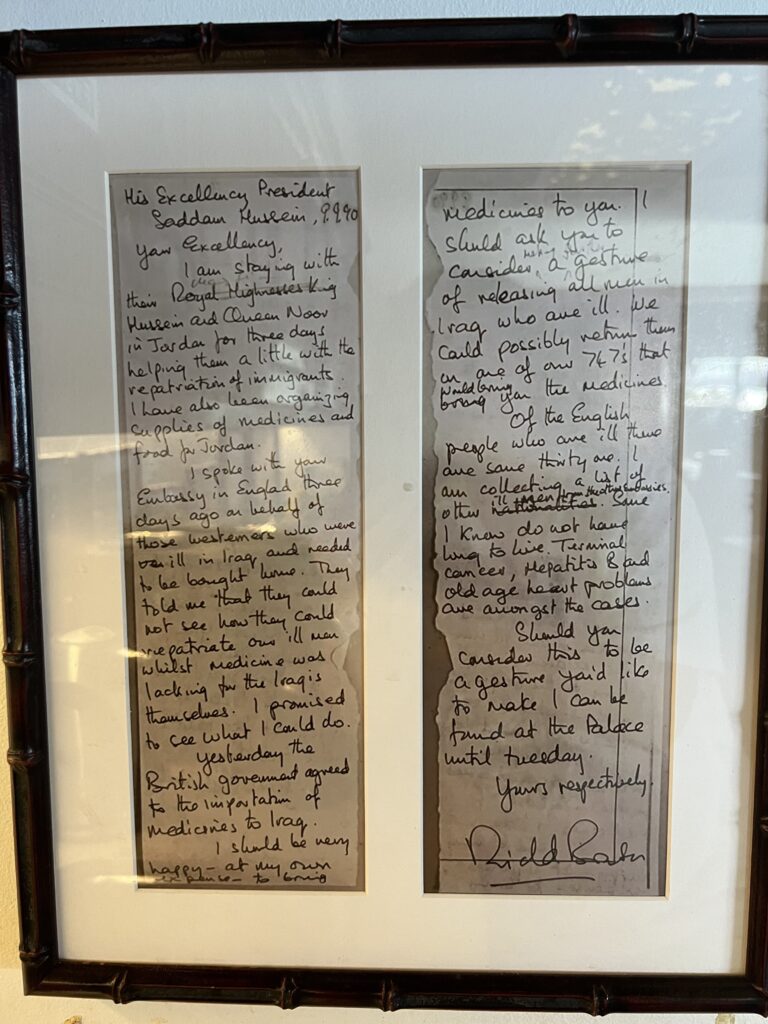 His Excellency President
Saddam Hussein, 9.9.90
Your Excellency,
I am staying with
their Royal Highnesses King
Hussein and Queen Noor
in Jordan for three days
helping them a little with the
repatriation of immigrants.
I have also been organizing
supplies of medicines and
food for Jordan.
I spoke with your
Embassy in England three
days ago on behalf of
those westerners who were
ill in Iraq and needed
to be bought home. They
told me that they could
not see how they could
repatriate our ill men
whilst medicine was
lacking for the Iraqis
themselves. I promised
to see what I could do.
Yesterday the
British government agreed
to the importation of
medicines to Iraq.
I should be very
happy – at my own
expense – to bring
medicines to you. I
should ask you to
consider a gesture
of releasing all men in
Iraq who are ill. We
could possibly return them
on one of our 747s that
would bring
you the medicines.
Of the English
people who are ill there
are some thirty one. I
am collecting a list of
ill men from the other embassies.
other nationalities. Some
I know do not have
long to live. Terminal
cancer, Hepatitis B and
old age heart problems
are amongst the cases.
Should you
consider this to be
a gesture you'd like
to make I can be
found at the Palace
until tuesday.
Yours respectively.